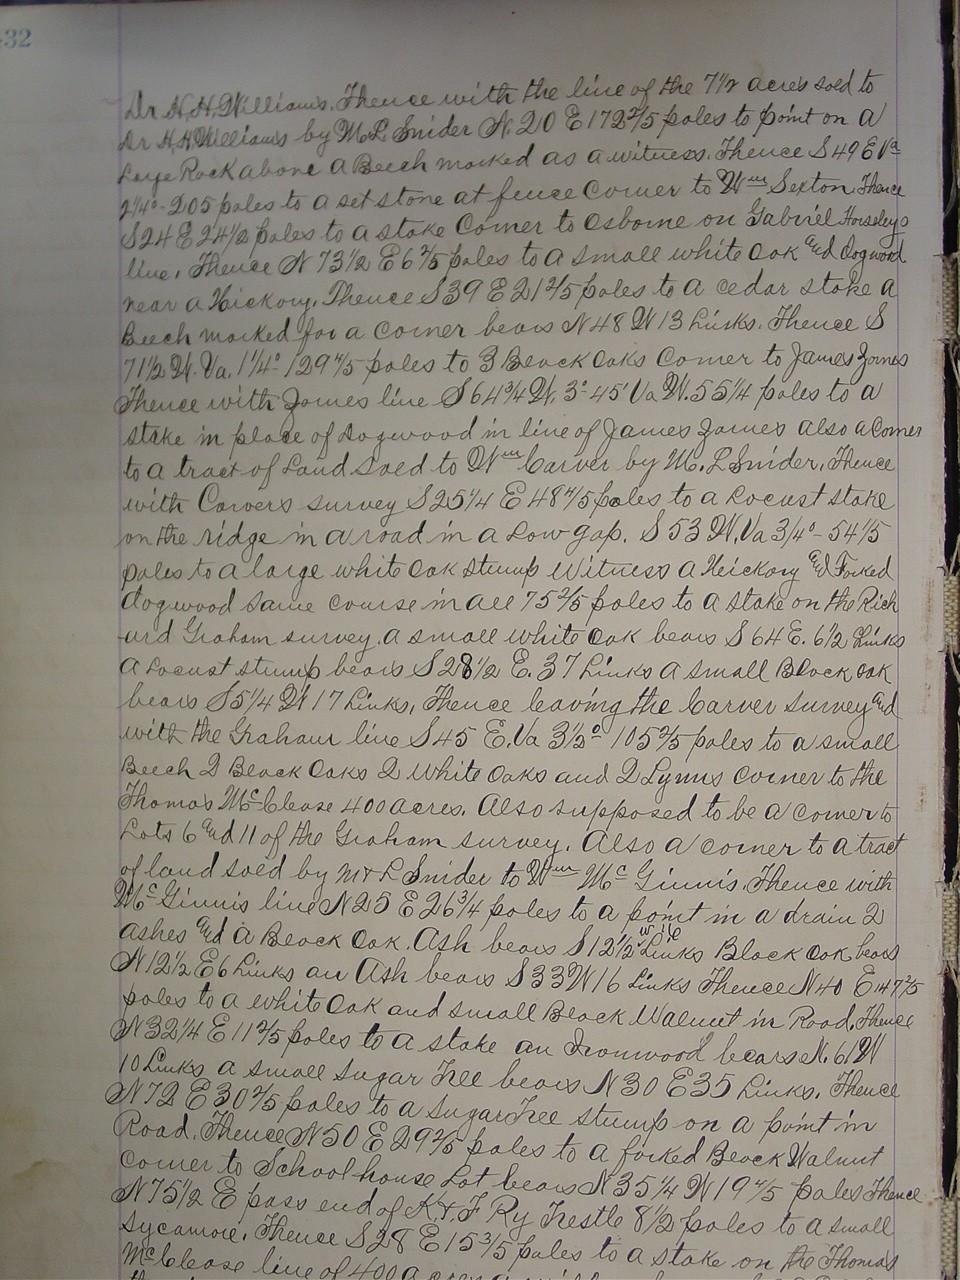 432
Dr H. H. Williams. Thence with the line of the 7 1/2 acres sold to
Dr H. H. Williams by M. L. Snider N. 20 E 172 2/5 poles to point on a
Large Rock above a Beech marked as a witness. Thence S 49 E Va
2 1/4° - 205 poles to a set stone at fence corner to Wm Sexton, Thence
S 24 E 24 1/2 poles to a stake corner to Osborne on Gabriel Horseleys
line. Thence N 73 1/2 E 6 2/5 poles to a small white oak and dogwood
near a Hickory. Thence S 39 E 21 2/5 poles to a cedar stake a
Beech marked for a corner bears N 48 W 13 Links. Thence S
71 1/2 W. Va. 1 1/4° 129 4/5 poles to 3 Black Oaks corner to James Jomes
Thence with Jomes line S 64 3/4 W. 3° 45' Va W. 55 1/4 poles to a
stake in place of dogwood in line of James Jomes also a corner
to a tract of Land sold to Wm Carver by M. L Snider. Thence
with Carvers survey S 25 1/4 E 48 4/5 poles to a Locust stake
on the ridge in a road in a Low gap. S 53 W. Va 3/4° - 54 1/5
poles to a large white oak stump Witness a Heickory and Forked
dogwood same course in all 75 2/5 poles to a stake on the Rich
ard Graham survey. a small white oak bears S 64 E. 6 1/2 Links
a Locust stump bears S 28 1/2 E. 37 Links a small Black oak
bears S 5 1/4 W 17 Links, Thence leaving the Carver survey and
with the Graham line S 45 E. Va 3 1/2° 105 2/5 poles to a small
Beech 2 Black Oaks 2 white Oaks and 2 Lynns corner to the
Thomas McClease 400 acres. Also supposed to be a corner to
Lots 6 and 11 of the Graham survey. Also a corner to a tract
of land sold by M & L Snider to Wm Mc Ginnis. Thence with
Mc Ginnis line N 25 E 26 3/4 poles to a point in a drain 2
ashes and a Black Oak. Ash bears S 12 1/2 Links Black oak bears
N 12 1/2 E 6 Links an Ash bears S 33 W 16 Links Thence N 40 E 147 2/5
poles to a white Oak and small Black Walnut in Road, Thence
N 32 1/4 E 11 2/5 poles to a stake an Ironwood bears N. 61 W
10 Links a small Sugar Tree bears N 30 E 35 Links. Thence
N 72 E 30 2/5 poles to a Sugar Tree stump on a point in
Road. Thence N 50 E 29 2/5 poles to a forked Black Walnut
Corner to School house Lot bears N 35 1/4 W 19 4/5 poles Thence
N 75 1/2 E pass end of K. & F Ry Trestle 8 1/2 poles to a small
Sycamore. Thence S 28 E 15 3/5 poles to a stake on the Thomas
McClease line of 400 acres